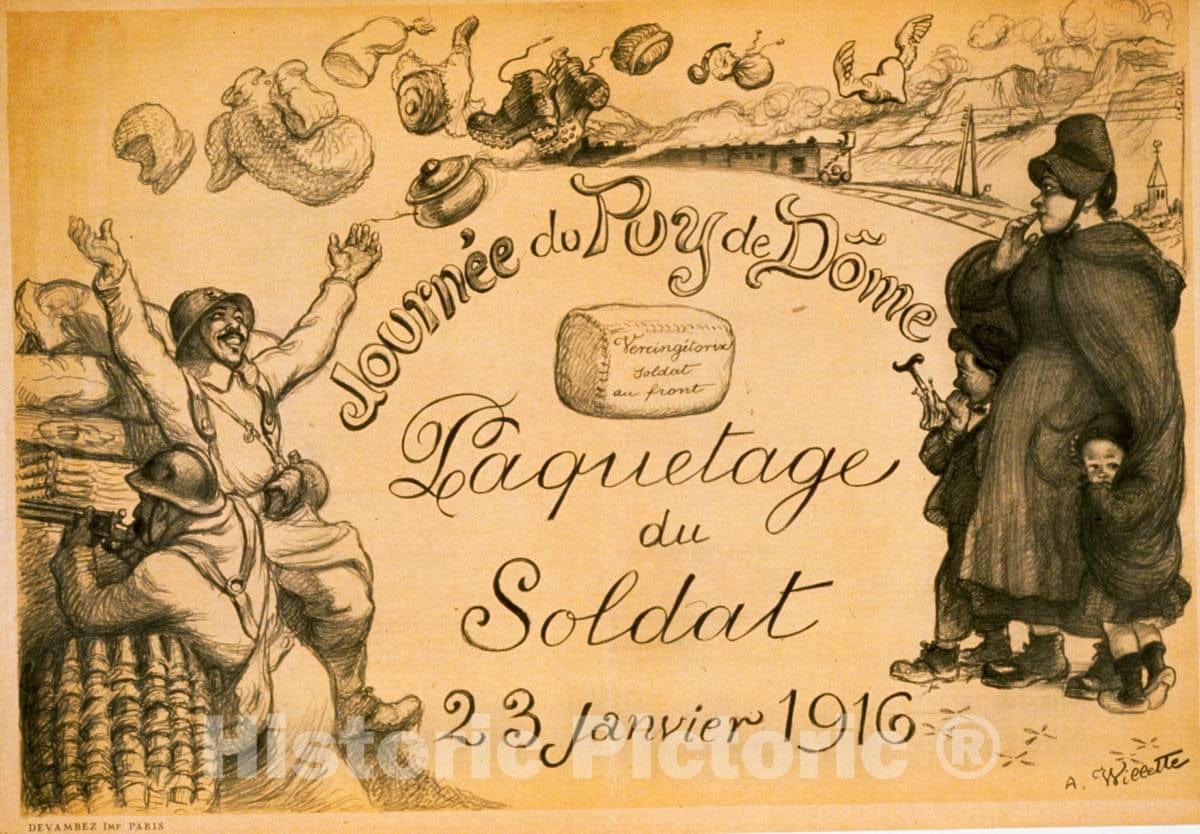 Journée du Puy de Dôme
Vercingétorix
soldat
au front
Paquetage
du
Soldat
23 janvier 1916
Historic Pictoric ®
A. Willette
DEVAMBEZ IMP PARIS